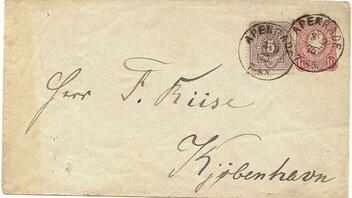 APENRADE
5
APENRADE
Herr F. Riise
Kjöbenhavn